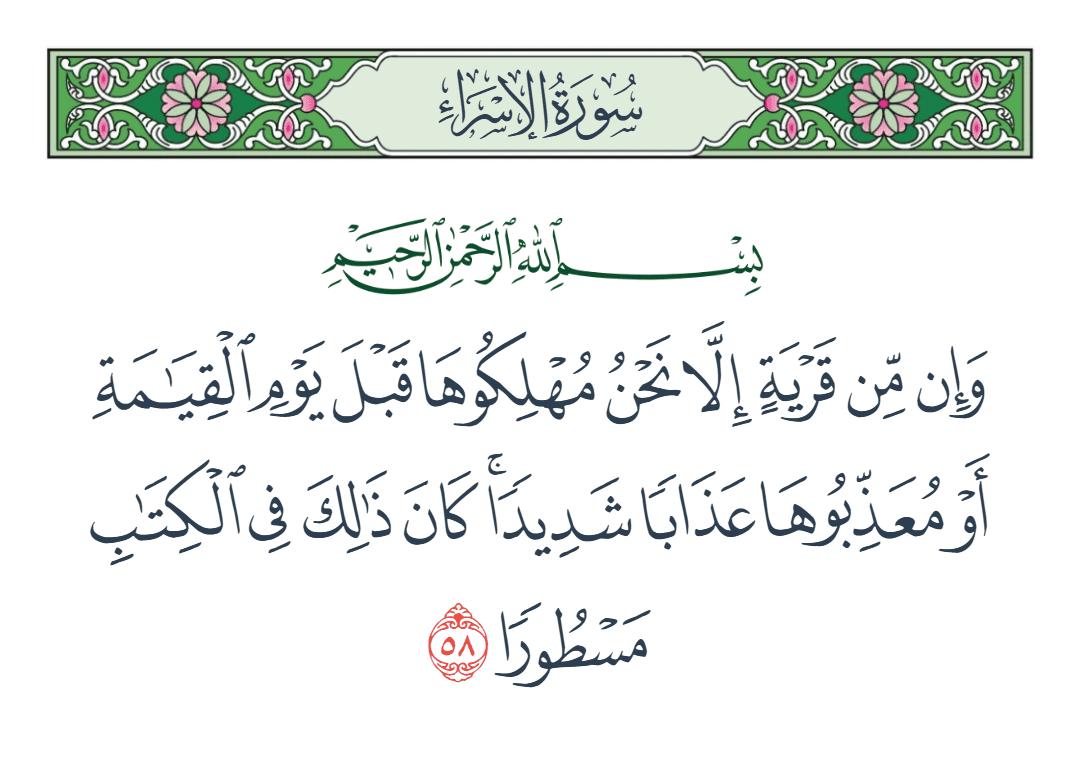 سُورَةُ الإِسْرَاءِ
بِسْمِ ٱللَّهِ ٱلرَّحْمَٰنِ ٱلرَّحِيمِ
وَإِن مِّن قَرْيَةٍ إِلَّا نَحْنُ مُهْلِكُوهَا قَبْلَ يَوْمِ ٱلْقِيَٰمَةِ
أَوْ مُعَذِّبُوهَا عَذَابًا شَدِيدًاۚ كَانَ ذَٰلِكَ فِى ٱلْكِتَٰبِ
مَسْطُورًا ٥٨